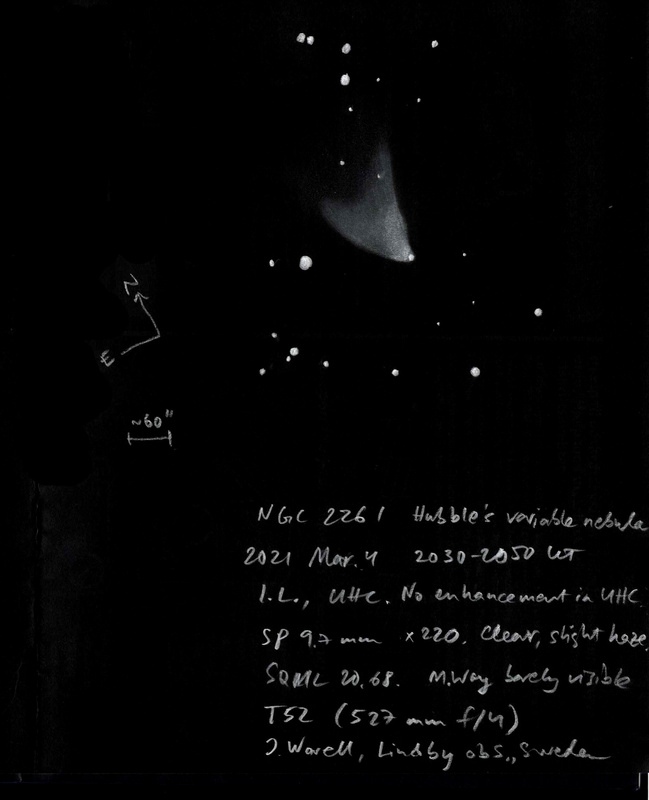 N
E
~60"
NGC 2261 Hubble's variable nebula
2021 Mar. 4 2030-2050 UT
I.L., UHC. No enhancement in UHC.
SP 9.7 mm x220. Clear, slight haze.
SQML 20.68. M.Way barely visible
T52 (527 mm f/4)
J. Warell, Lindby obs., Sweden